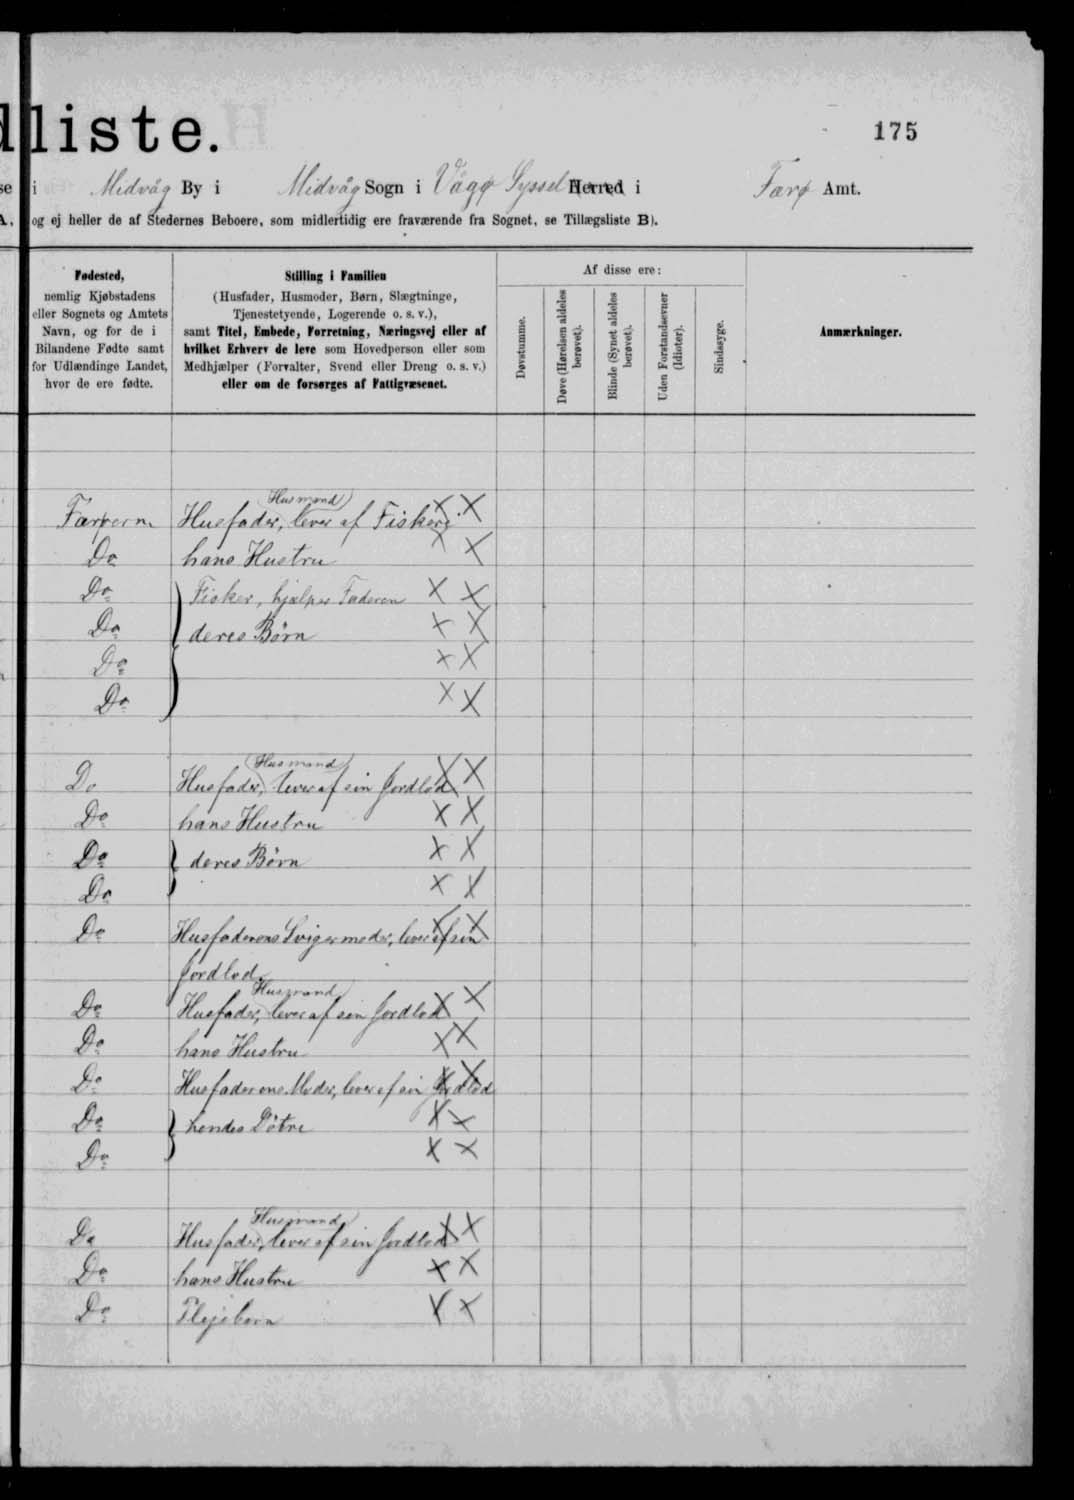 dliste.
175
se i Midvåg By i Midvåg Sogn i Vågø Syssel Herred i Færø Amt.
A, og ej heller de af Stedernes Beboere, som midlertidig ere fraværende fra Sognet, se Tillægsliste B).
Fødested,
nemlig Kjøbstadens
eller Sognets og Amtets
Navn, og for de i
Bilandene Fødte samt
for Udlændinge Landet,
hvor de ere fødte.
Stilling i Familien
(Husfader, Husmoder, Børn, Slægtninge,
Tjenestetyende, Logerende o. s. v.),
samt Titel, Embede, Forretning, Næringsvej eller af
hvilket Erhverv de leve som Hovedperson eller som
Medhjælper (Forvalter, Svend eller Dreng o. s. v.)
eller om de forsørges af Fattigvæsenet.
Af disse ere:
Døvstumme.
Døve (Hørelsen aldeles
berøvet).
Blinde (Synet aldeles
berøvet).
Uden Forstandsevner
(Idioter).
Sindssyge.
Anmærkninger.
Husmand
Færøerne Husfader, lever af Fiskeri
Do hans Hustru
Do Fisker, hjælper Faderen
Do deres Børn
Do
Do
Husmand
Do Husfader, lever af sin Jordlod
Do hans Hustru
Do deres Børn
Do
Do Husfaderens Svigermoder, lever af sin
Jordlod.
Husmand
Do Husfader, lever af sin Jordlod
Do hans Hustru
Do Husfaderens Moder, lever af sin Jordlod
Do hendes Døtre
Do
Husmand
Do Husfader, lever af sin Jordlod
Do hans Hustru
Do Plejebarn